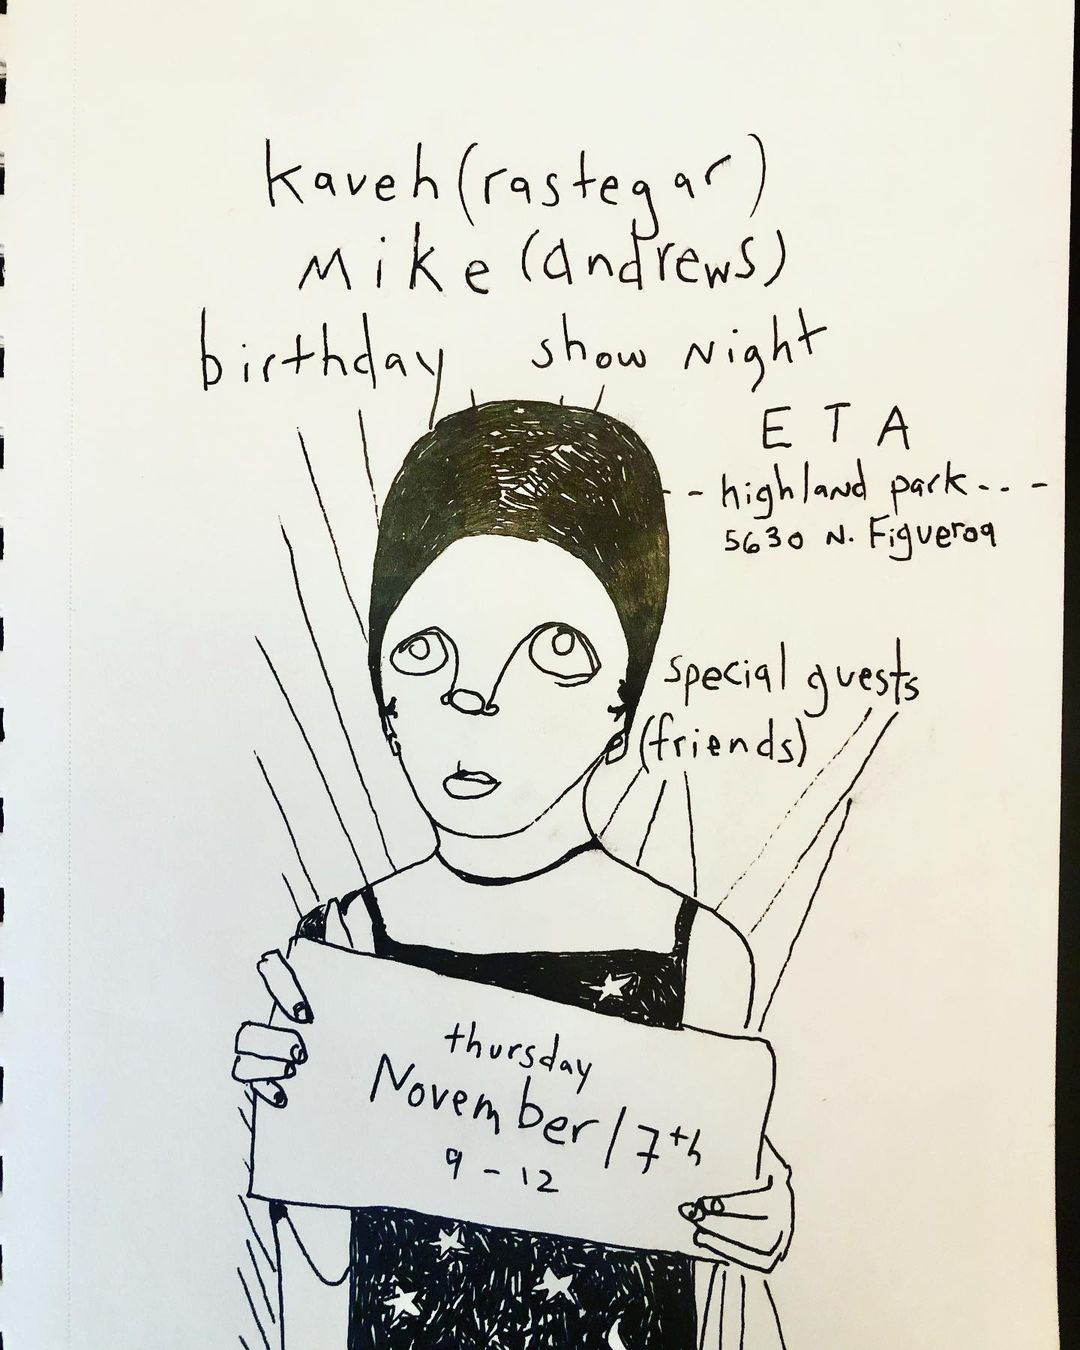 kaveh (rastegar)
Mike (andrews)
birthday show night
ETA
- - highland park - - -
5630 N. Figueroa
special guests
(friends)
thursday
November 17th
9 - 12